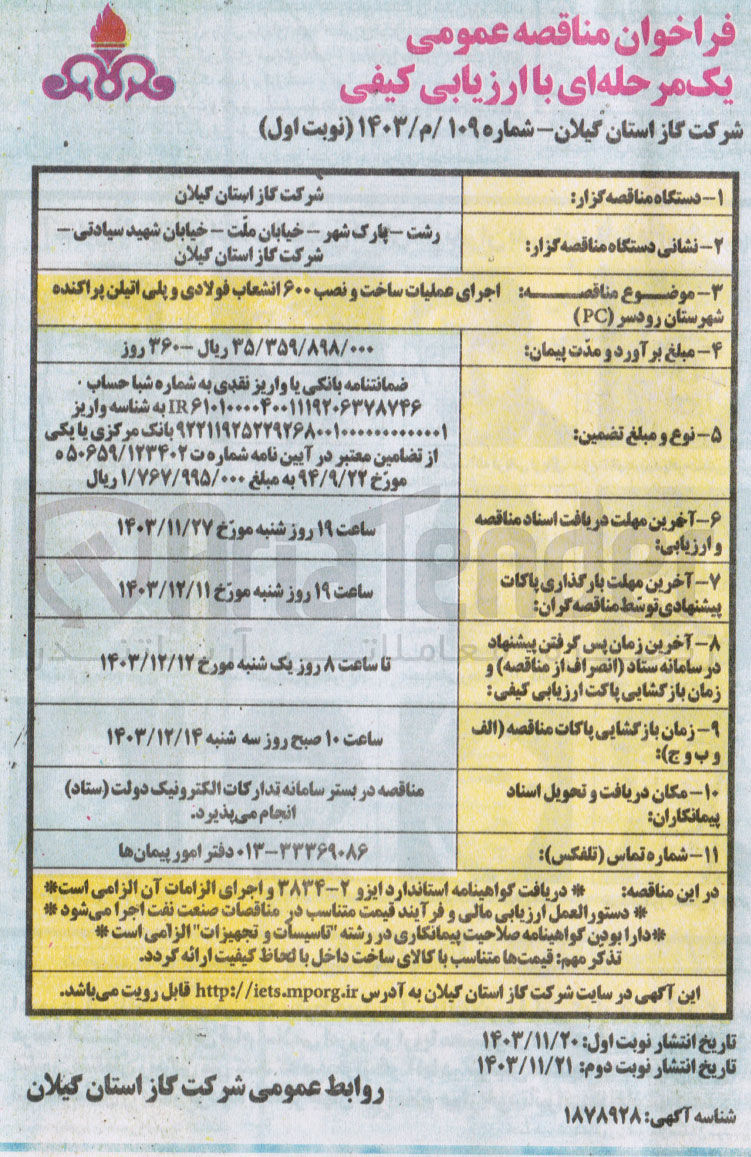 فراخوان مناقصه عمومی
یک‌مرحله‌ای با ارزیابی کیفی
شرکت گاز استان گیلان - شماره ۱۰۹ /م/ ۱۴۰۳ (نوبت اول)
۱- دستگاه مناقصه‌گزار: شرکت گاز استان گیلان
۲- نشانی دستگاه مناقصه‌گزار: رشت - پارک شهر - خیابان ملّت - خیابان شهید سیادتی -
شرکت گاز استان گیلان
۳- موضوع مناقصه: اجرای عملیات ساخت و نصب ۶۰۰ انشعاب فولادی و پلی اتیلن پراکنده
شهرستان رودسر (PC)
۴- مبلغ برآورد و مدّت پیمان: ۳۵/۳۵۹/۸۹۸/۰۰۰ ریال - ۳۶۰ روز
۵- نوع و مبلغ تضمین: ضمانتنامه بانکی یا واریز نقدی به شماره شبا حساب
IR۶۱۰۱۰۰۰۰۴۰۰۱۱۱۹۲۰۶۳۷۸۷۴۶ به شناسه واریز
۹۲۲۱۱۹۲۵۲۲۹۲۶۸۰۰۱۰۰۰۰۰۰۰۰۰۰۰۰۱ بانک مرکزی یا یکی
از تضامین معتبر در آیین نامه شماره ت ۵۰۶۵۹/۱۲۳۴۰۲ ه
مورّخ ۹۴/۹/۲۲ به مبلغ ۱/۷۶۷/۹۹۵/۰۰۰ ریال
۶- آخرین مهلت دریافت اسناد مناقصه
و ارزیابی:
ساعت ۱۹ روز شنبه مورّخ ۱۴۰۳/۱۱/۲۷
۷- آخرین مهلت بارگذاری پاکات
پیشنهادی توسّط مناقصه‌گران:
ساعت ۱۹ روز شنبه مورّخ ۱۴۰۳/۱۲/۱۱
۸- آخرین زمان پس گرفتن پیشنهاد
در سامانه ستاد (انصراف از مناقصه) و
زمان بازگشایی پاکت ارزیابی کیفی:
تا ساعت ۸ روز یک شنبه مورخ ۱۴۰۳/۱۲/۱۲
۹- زمان بازگشایی پاکات مناقصه (الف
و ب و ج):
ساعت ۱۰ صبح روز سه شنبه ۱۴۰۳/۱۲/۱۴
۱۰- مکان دریافت و تحویل اسناد
پیمانکاران:
مناقصه در بستر سامانه تدارکات الکترونیک دولت (ستاد)
انجام می‌پذیرد.
۱۱- شماره تماس (تلفکس): ۰۱۳-۳۳۳۶۹۰۸۶ دفتر امور پیمان‌ها
در این مناقصه: * دریافت گواهینامه استاندارد ایزو ۲-۳۸۳۴ و اجرای الزامات آن الزامی است*
* دستورالعمل ارزیابی مالی و فرآیند قیمت متناسب در مناقصات صنعت نفت اجرا می‌شود *
*دارا بودن گواهینامه صلاحیت پیمانکاری در رشته "تاسیسات و تجهیزات" الزامی است *
تذکر مهم: قیمت‌ها متناسب با کالای ساخت داخل با لحاظ کیفیت ارائه گردد.
این آگهی در سایت شرکت گاز استان گیلان به آدرس http://iets.mporg.ir قابل رویت می‌باشد.
تاریخ انتشار نوبت اول: ۱۴۰۳/۱۱/۲۰
تاریخ انتشار نوبت دوم: ۱۴۰۳/۱۱/۲۱
روابط عمومی شرکت گاز استان گیلان
شناسه آگهی: ۱۸۷۸۹۲۸
AriaTender